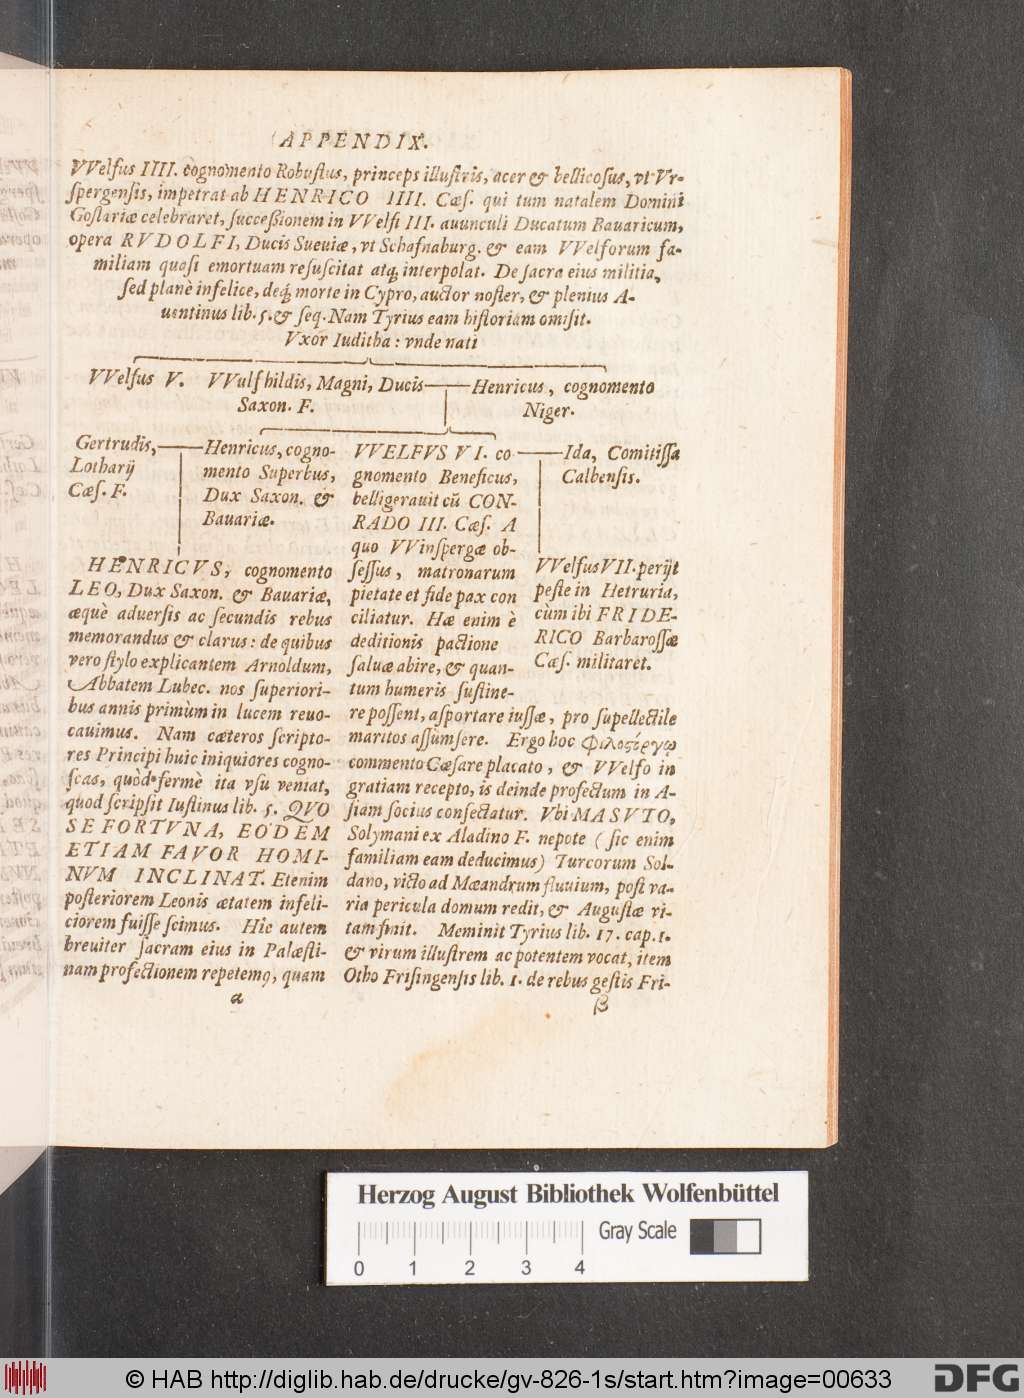 APPENDIX.
VVelfus IIII. cognomento Robustus, princeps illustris, acer & bellicosus, vt Vr-
spergensis, impetrat ab HENRICO IIII. Cæs. qui tum natalem Domini
Goslariæ celebraret, successionem in VVelfi III. auunculi Ducatum Bauaricum,
opera RVDOLFI, Ducis Sueuiæ, vt Schafnaburg. & eam VVelforum fa-
miliam quasi emortuam resuscitat atq, interpolat. De sacra eius militia,
sed planè infelice, deq́, morte in Cypro, auctor noster, & plenius A-
uentinus lib. 5. & seq. Nam Tyrius eam historiam omisit.
Vxor Iuditha: vnde nati
VVelfus V. VVulfhildis, Magni, Ducis Henricus, cognomento
Saxon. F. Niger.
Gertrudis,
Lotharij
Cæs. F.
Henricus, cogno-
mento Superbus,
Dux Saxon. &
Bauariæ.
HENRICVS, cognomento
LEO, Dux Saxon. & Bauariæ,
æquè aduersis ac secundis rebus
memorandus & clarus: de quibus
vero stylo explicantem Arnoldum,
Abbatem Lubec. nos superiori-
bus annis primùm in lucem reuo-
cauimus. Nam cæteros scripto-
res Principi huic iniquiores cogno-
scas, quòd fermè ita vsu veniat,
quod scripsit Iustinus lib. 5. QVO
SE FORTVNA, EODEM
ETIAM FAVOR HOMI-
NVM INCLINAT. Etenim
posteriorem Leonis ætatem infeli-
ciorem fuisse scimus. Hic autem
breuiter sacram eius in Palæsti-
nam profectionem repetemq, quam
a
VVELFVS VI. co-
gnomento Beneficus,
belligerauit cū CON-
RADO III. Cæs. A
quo VVinspergæ ob-
sessus, matronarum
pietate et fide pax con
ciliatur. Hæ enim è
deditionis pactione
saluæ abire, & quan-
tum humeris sustine-
re possent, asportare iussæ, pro supellectile
maritos assumsere. Ergo hoc φιλοςόργῳ
commento Cæsare placato, & VVelfo in
gratiam recepto, is deinde profectum in A-
siam socius consectatur. Vbi MASVTO,
Solymani ex Aladino F. nepote (sic enim
familiam eam deducimus) Turcorum Sol-
dano, victo ad Mæandrum fluuium, post va-
ria pericula domum redit, & Augustæ vi-
tam finit. Meminit Tyrius lib. 17. cap. 1.
& virum illustrem ac potentem vocat, item
Otho Frisingensis lib. 1. de rebus gestis Fri-
β
Ida, Comitissa
Calbensis.
VVelfus VII. perijt
peste in Hetruria,
cùm ibi FRIDE-
RICO Barbarossæ
Cæs. militaret.
Herzog August Bibliothek Wolfenbüttel
Gray Scale
0 1 2 3 4
© HAB http://diglib.hab.de/drucke/gv-826-1s/start.htm?image=00633
DFG